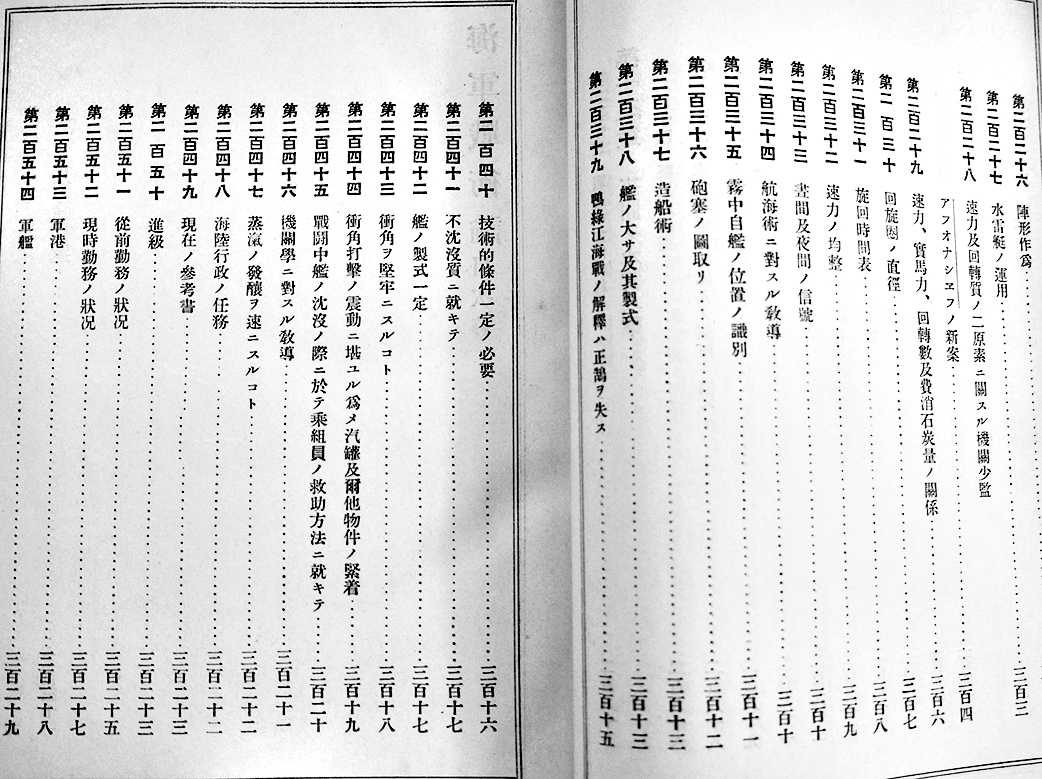 第二百二十六 陣形作爲 三百三
第二百二十七 水雷艇ノ運用
第二百二十八 速力及回轉質ノ二原素ニ關スル機關少監
アフオナシヱフノ新案 三百四
第二百二十九 速力、實馬力、回轉數及費消石炭量ノ關係 三百六
第二百三十 回旋圈ノ直徑 三百七
第二百三十一 旋回時間表 三百八
第二百三十二 速力ノ均整 三百九
第二百三十三 晝間及夜間ノ信號 三百十
第二百三十四 航海術ニ對スル敎導 三百十
第二百三十五 霧中自艦ノ位置ノ識別 三百十一
第二百三十六 砲塞ノ圖取リ 三百十二
第二百三十七 造船術 三百十三
第二百三十八 艦ノ大サ及其製式 三百十三
第二百三十九 鴨綠江海戰ノ解釋ハ正鵠ヲ失ス 三百十五
第二百四十 技術的條件一定ノ必要 三百十六
第二百四十一 不沈沒質ニ就キテ 三百十七
第二百四十二 艦ノ製式一定 三百十七
第二百四十三 衝角ヲ堅牢ニスルコト 三百十八
第二百四十四 衝角打擊ノ震動ニ堪ユル爲メ汽罐及爾他物件ノ緊着 三百十九
第二百四十五 戰鬪中艦ノ沈沒ノ際ニ於テ乘組員ノ救助方法ニ就キテ 三百二十
第二百四十六 機關學ニ對スル敎導 三百二十一
第二百四十七 蒸氣ノ發釀ヲ速ニスルコト 三百二十二
第二百四十八 海陸行政ノ任務 三百二十二
第二百四十九 現在ノ參考書 三百二十三
第二百五十 進級 三百二十三
第二百五十一 從前勤務ノ狀况 三百二十五
第二百五十二 現時勤務ノ狀况 三百二十七
第二百五十三 軍港 三百二十八
第二百五十四 軍艦 三百二十九